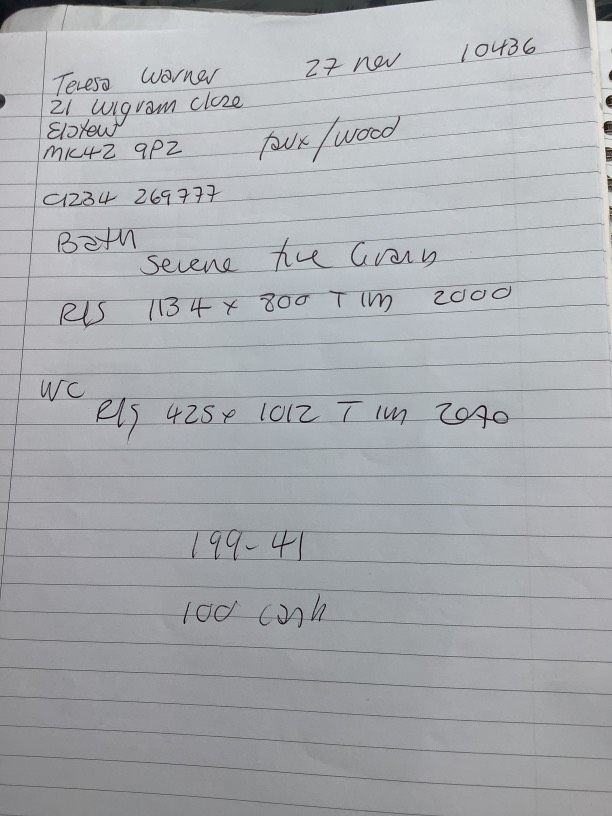 Teresa Warner 27 nov 10436
21 Wigram Close
Elstow
MK42 9PZ faux/wood
01234 269777
Bath
Serene fue Grain
R/S 1134 x 800 T 1m 2000
WC
R/S 425 x 1012 T 1m 2070
199-41
100 cash